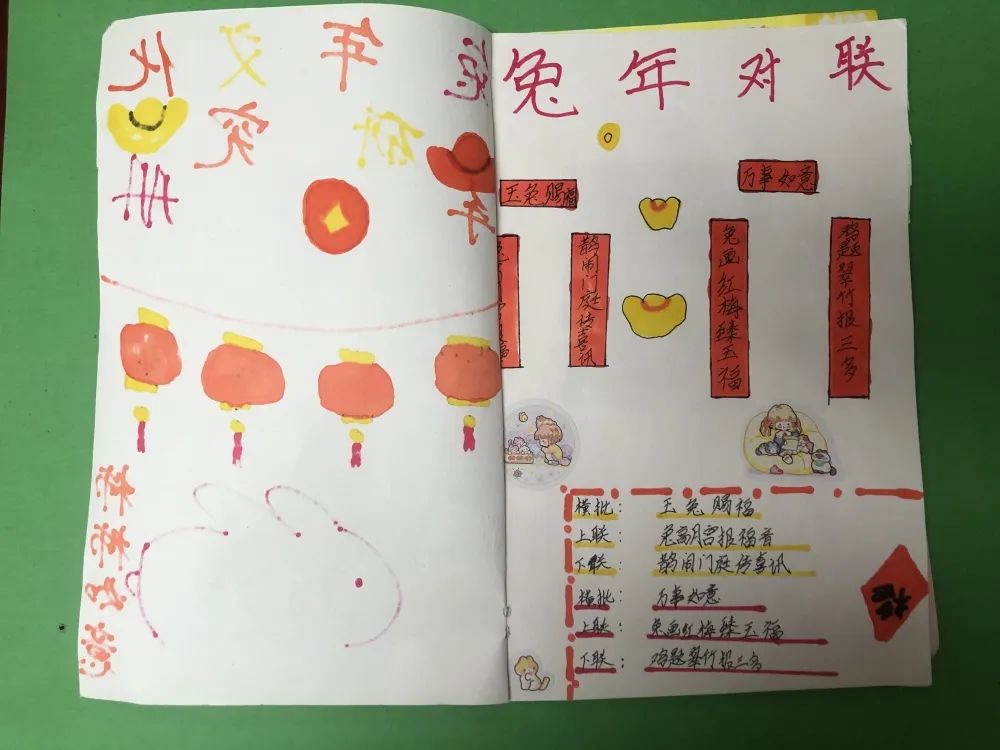 兔年文化
研究
兔年对联
玉兔赐福
万事如意
鹊闹门庭传喜讯
兔画红梅臻五福
鸡题翠竹报三多
横批：玉兔赐福
上联：兔离月宫报福音
下联：鹊闹门庭传喜讯
横批：万事如意
上联：兔画红梅臻五福
下联：鸡题翠竹报三多
福